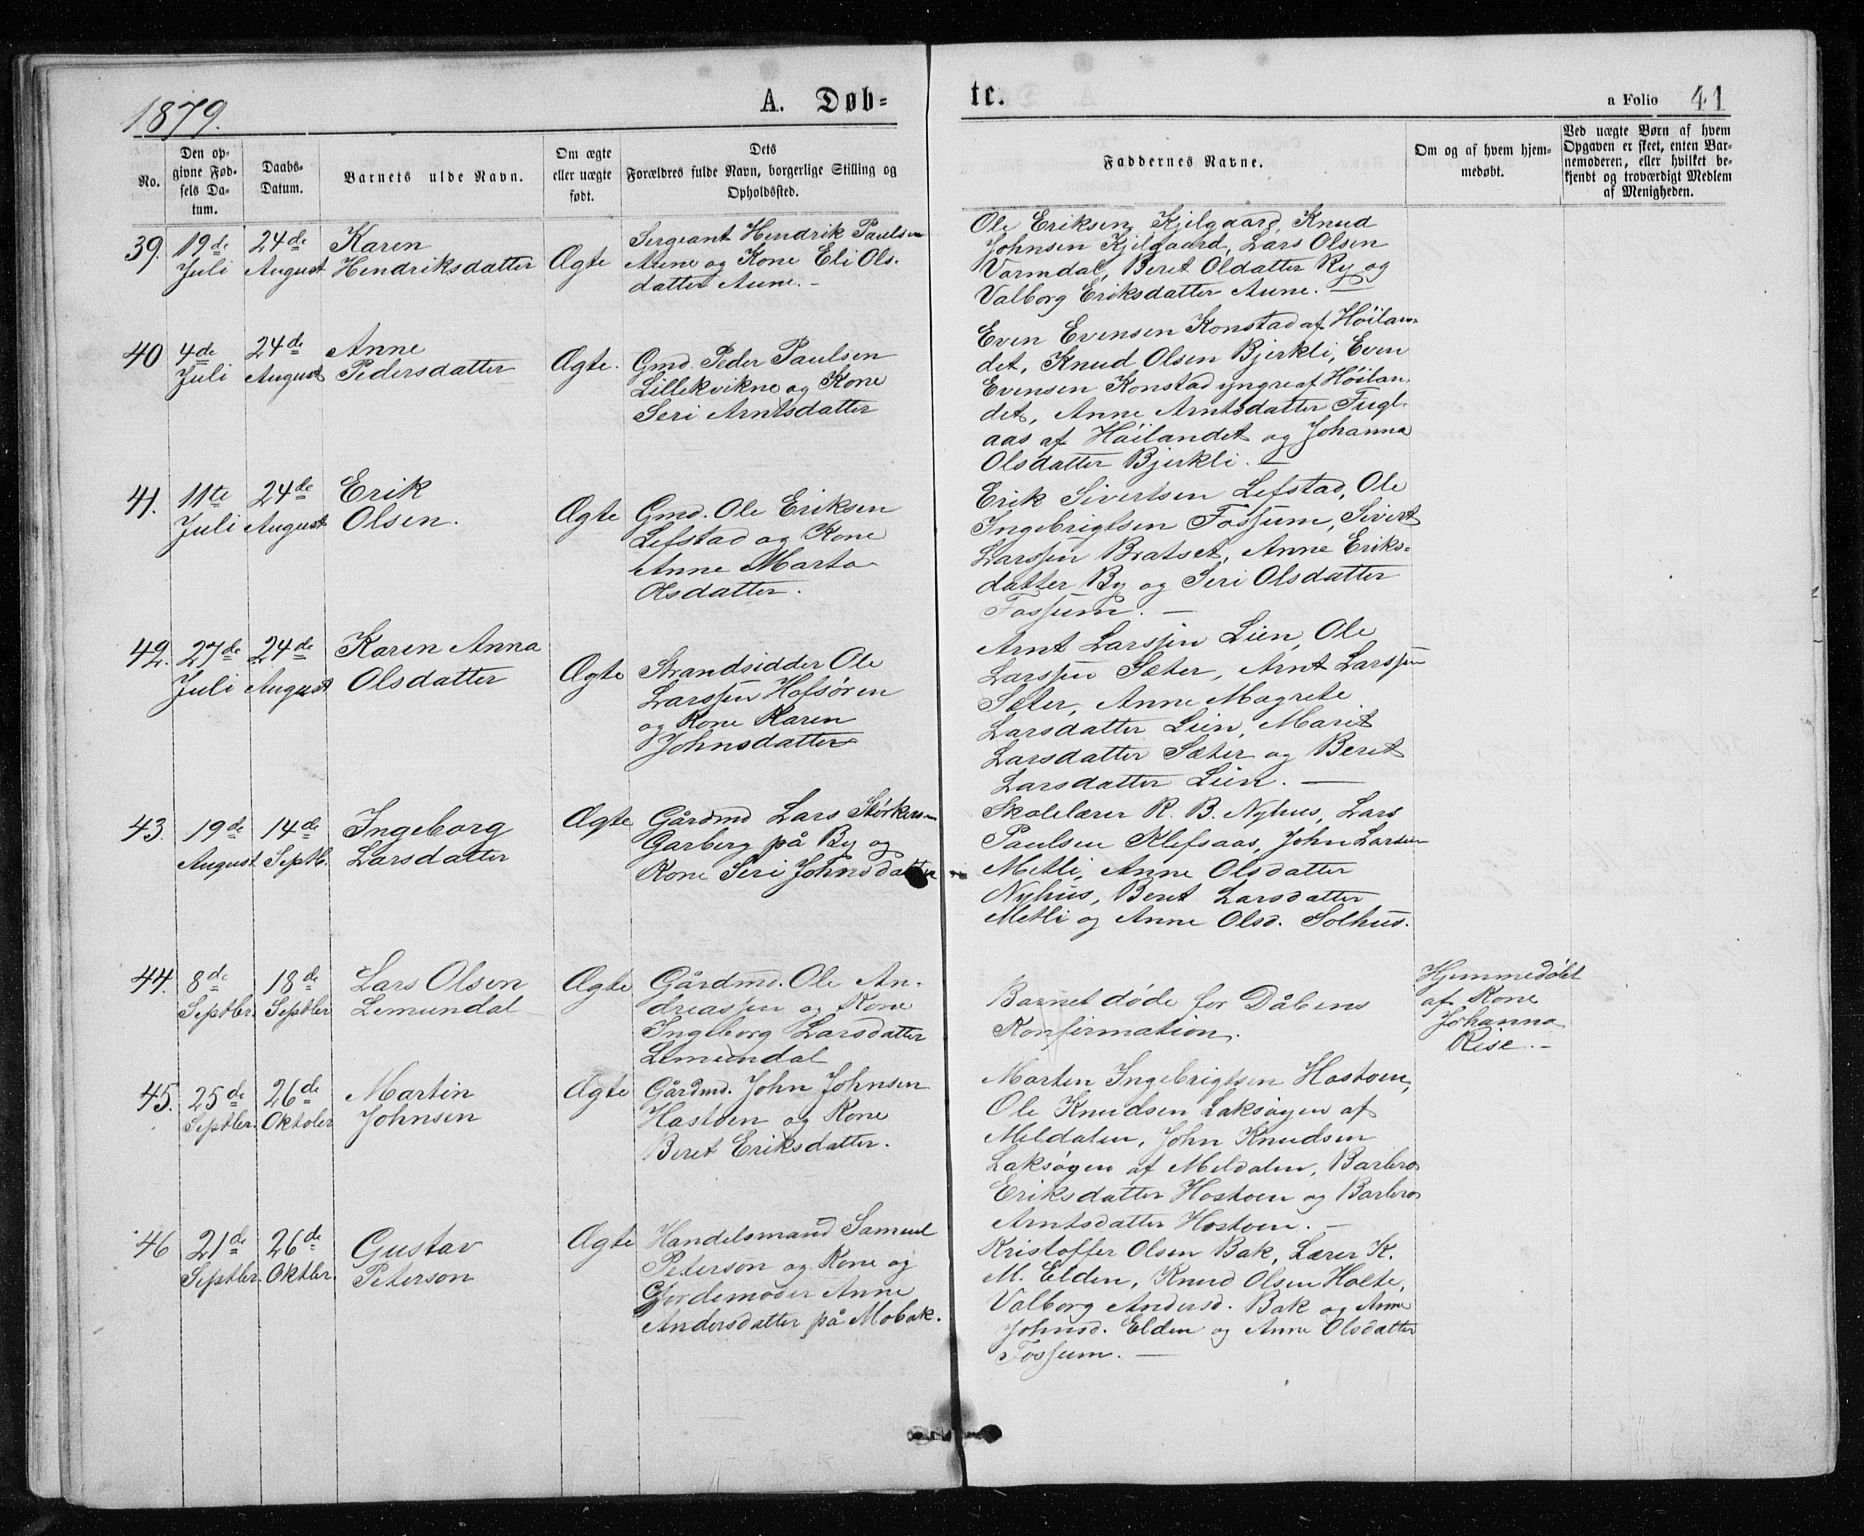 1879.
A. Døb=
te.
a Folio 41
No.
Den op-
givne Fød-
sels Da-
tum.
Daabs-
Datum.
Barnets ulde Navn.
Om ægte
eller uægte
født.
Dets
Forældres fulde Navn, borgerlige Stilling og
Opholdssted.
Faddernes Navne.
Om og af hvem hjem-
medøbt.
Ved uægte Børn af hvem
Opgaven er skeet, enten Bar-
nemoderen, eller hvilket be-
kjendt og troværdigt Medlem
af Menigheden.
39.
19de
Juli
24de
August
Karen
Hendriksdatter
Ægte
Sergeant Hendrik Paulsen
Aune og Kone Eli Ols-
datter Aune. -
Ole Eriksen Kjelgaard, Knud
Johnsen Kjelgaard, Lars Olsen
Vormdal, Beret Oldatter Ry og
Valborg Eriksdatter Aune. —
40
4de
Juli
24de
August
Anne
Pedersdatter
Ægte.
Gmd. Peder Paulsen
Lillekvikne og Kone
Seri Arntsdatter
Even Evensen Konstad af Höilan-
det, Knud Olsen Bjerkli, Even
Evensen Konstad yngre af Höilan-
det, Anne Arntsdatter Fugl-
aas af Höilandet og Johanna
Olsdatter Bjerkli. —
41.
11te
Juli
24de
August
Erik
Olsen.
Ægte
Gmd. Ole Eriksen
Lefstad og Kone
Anne Marta
Olsdatter.
Erik Sivertsen Lefstad, Ole
Ingebrigtsen Fossum, Sivert
Larssen Bratset, Anne Eriks=
datter By og Seri Olsdatter
Fossum. —
42.
27de
Juli
24de
August
Karen Anna
Olsdatter
Ægte
Strandsidder Ole
Larssen Hofsøren
og Kone Karen
Johnsdatter
Arnt Larssen Lien, Ole
Larssen Sæter, Arnt Larssen
Sæter, Anne Magrete
Larsdatter Lien, Marit
Larsdatter Sæter og Beret
Larsdatter Lien. —
43.
19de
August
14de
Septb.
Ingeborg
Larsdatter
Ægte
Gårdmd Lars Størkersen
Garberg på By og
Kone Seri Johnsdatter
Skolelærer R. B. Nyhus, Lars
Paulsen Klefsaas, John Larsen
Metli, Anne Olsdatter
Nyhus, Beret Larsdatter
Metli og Anne Olsd. Solhus.
44.
8de
Septbr.
18de
Septbr
Lars Olsen
Lemundal
Ægte
Gårdmd. Ole An-
dreassen og Kone
Ingeborg Larsdatter
Lemundal
Barnet døde før Dåbens
Konfirmation.
Hjemmedøbt
af Kone
Johanna
Rise. -
45.
25de
Septbr.
26de
Oktober
Martin
Johnsen
Ægte
Gårdmd. John Johnsen
Hastoen og Kone
Beret Eriksdatter.
Morten Ingebrigtsen Hostoen,
Ole Knudsen Laksøyen af
Meldalen, John Knudsen
Laksøyen af Meldalen, Barbro
Eriksdatter Hostoen og Barbro
Arntsdatter Hostoen. -
46
21de
Septbr.
26de
Oktbr.
Gustav
Peterson
Ægte
Handelsmand Samuel
Peterson og Kone og
Gjordemoder Anne
Andersdatter på Mobak.
Kristoffer Olsen Bak, Lærer K.
M. Elden, Knud Olsen Holte,
Valborg Andersd. Bak og Anne
Johnsd. Elden og Anne Olsdatter
Fossum. —